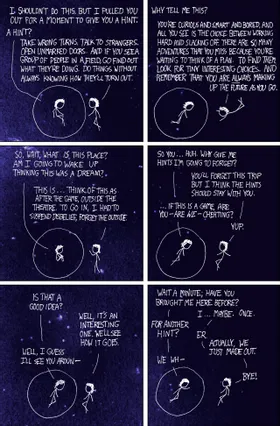 I SHOULDN'T DO THIS BUT I PULLED YOU
OUT FOR A MOMENT TO GIVE YOU A HINT.
A HINT?
TAKE WRONG TURNS. TALK TO STRANGERS.
OPEN UNMARKED DOORS. AND IF YOU SEE A
GROUP OF PEOPLE IN A FIELD, GO FIND OUT
WHAT THEY'RE DOING. DO THINGS WITHOUT
ALWAYS KNOWING HOW THEY'LL TURN OUT.
WHY TELL ME THIS?
YOU'RE CURIOUS AND SMART AND BORED, AND
ALL YOU SEE IS THE CHOICE BETWEEN WORKING
HARD AND SLACKING OFF. THERE ARE SO MANY
ADVENTURES THAT YOU MISS BECAUSE YOU'RE
WAITING TO THINK OF A PLAN. TO FIND THEM,
LOOK FOR TINY INTERESTING CHOICES. AND
REMEMBER THAT YOU ARE ALWAYS MAKING
UP THE FUTURE AS YOU GO.
SO, WAIT, WHAT IS THIS PLACE?
AM I GOING TO WAKE UP
THINKING THIS WAS A DREAM?
THIS IS... THINK OF THIS AS
AFTER THE GAME, OUTSIDE THE
THEATRE. TO GO IN, I HAD TO
SUSPEND DISBELIEF, FORGET THE OUTSIDE
SO YOU... HUH. WHY GIVE ME
HINTS I'M GOING TO FORGET?
YOU'LL FORGET THIS TRIP
BUT I THINK THE HINTS
SHOULD STAY WITH YOU.
... IF THIS IS A GAME, ARE
YOU—ARE WE—CHEATING?
YUP.
IS THAT A
GOOD IDEA?
WELL, IT'S AN
INTERESTING
ONE. WE'LL SEE
HOW IT GOES.
WELL, I GUESS
I'LL SEE YOU AROUN—
WAIT A MINUTE, HAVE YOU
BROUGHT ME HERE BEFORE?
I... MAYBE. ONCE.
FOR ANOTHER
HINT?
ER,
ACTUALLY, WE
JUST MADE OUT.
WE WH—
BYE!